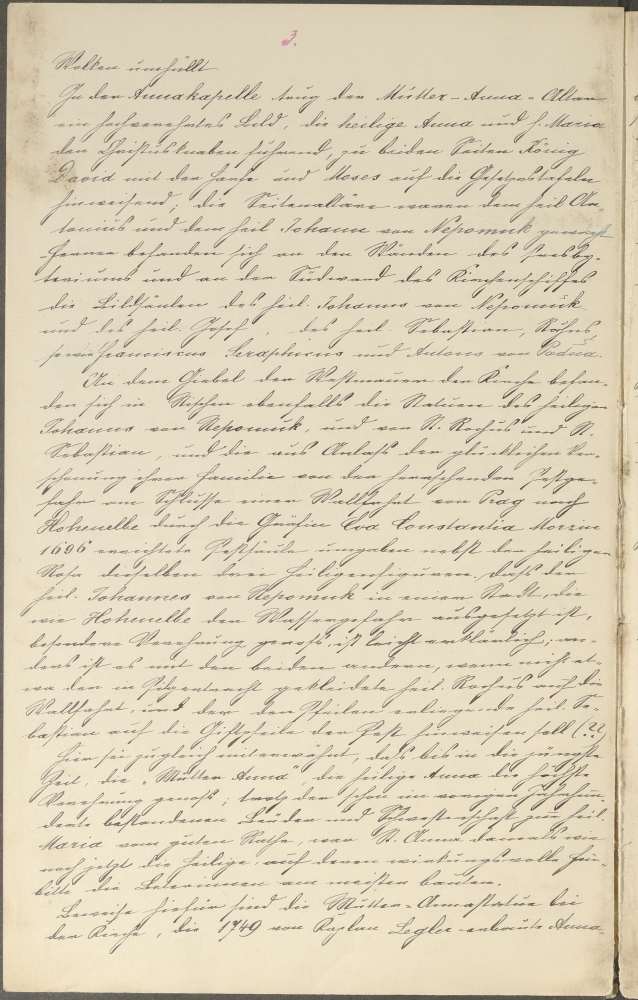 3.
Wolken umhüllt
In der Annakapelle trug der Mutter-Anna-Altar
ein hochverehrtes Bild, die heilige Anna und h. Maria
den Christusknaben führend, zu beiden Seiten König
David mit der Harfe und Moses auf die Gesetzestafeln
hinweisend; die Seitenaltäre waren dem heil. An-
tonius und dem heil. Johann von Nepomuk geweiht
Ferner befanden sich an den Wänden des Presby-
teriums und an der Südwand des Kirchenschiffes
die Bildsäulen des heil. Johannes von Nepomuk
und des heil. Josef, des heil. Sebastian, Rochus
sowie Franciscus Seraphicus und Antons von Padua.
An dem Giebel der Westmauer der Kirche befan-
den sich in Nischen ebenfalls die Statuen des heiligen
Johannes von Nepomuk, und von St. Rochus und St.
Sebastian, und die aus Anlaß der glücklichen Ver-
schonung ihrer Familie von der herrschenden Pestge-
fahr am Schlusse einer Wallfahrt von Prag nach
Hohenelbe durch die Gräfin Eva Constantia Morzin
1696 errichtete Pestsäule umgaben nebst der heiligen
Rosa dieselben drei Heiligenfiguren. Daß der
heil. Johannes von Nepomuk in einer Stadt, die
wie Hohenelbe der Wassergefahr ausgesetzt ist,
besondere Verehrung genoß, ist leicht erklärlich; an-
ders ist es mit den beiden andern, wenn nicht et-
wa der in Pilgertracht gekleidete heil. Rochus auf die
Wallfahrt, und der den Pfeilen erliegende heil. Se-
bastian auf die Giftpfeile der Pest hinweisen soll (??)
Hier sei zugleich miterwähnt, daß bis in die jüngste
Zeit, die "Mutter Anna", die heilige Anna die höchste
Verehrung genoß; trotz der schon im vorigen Jahrhun-
derte bestandenen Brüder und Schwesterschaft zur heil.
Maria vom guten Rathe, war St. Anna damals wie
noch jetzt die Heilige, auf deren wirkungsvolle Für-
bitte die Beterinnen am meisten bauten.
Beweise hiefür sind die Mutter-Annastatue bei
der Kirche, die 1749 von Kaplan Legler erbaute Anna-